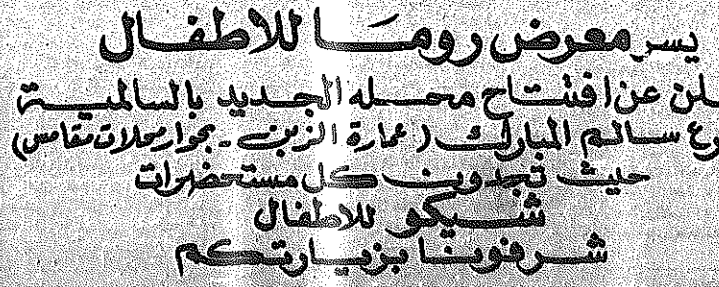 يسر معرض روما للاطفال
لن عن افتتاح محله الجديد بالسالمية
وع سالم المبارك (عمارة الزبن - بجوار محلات مقامس)
حيث تجدون كل مستحضرات
شيكو للاطفال
شرفونا بزيارتكم